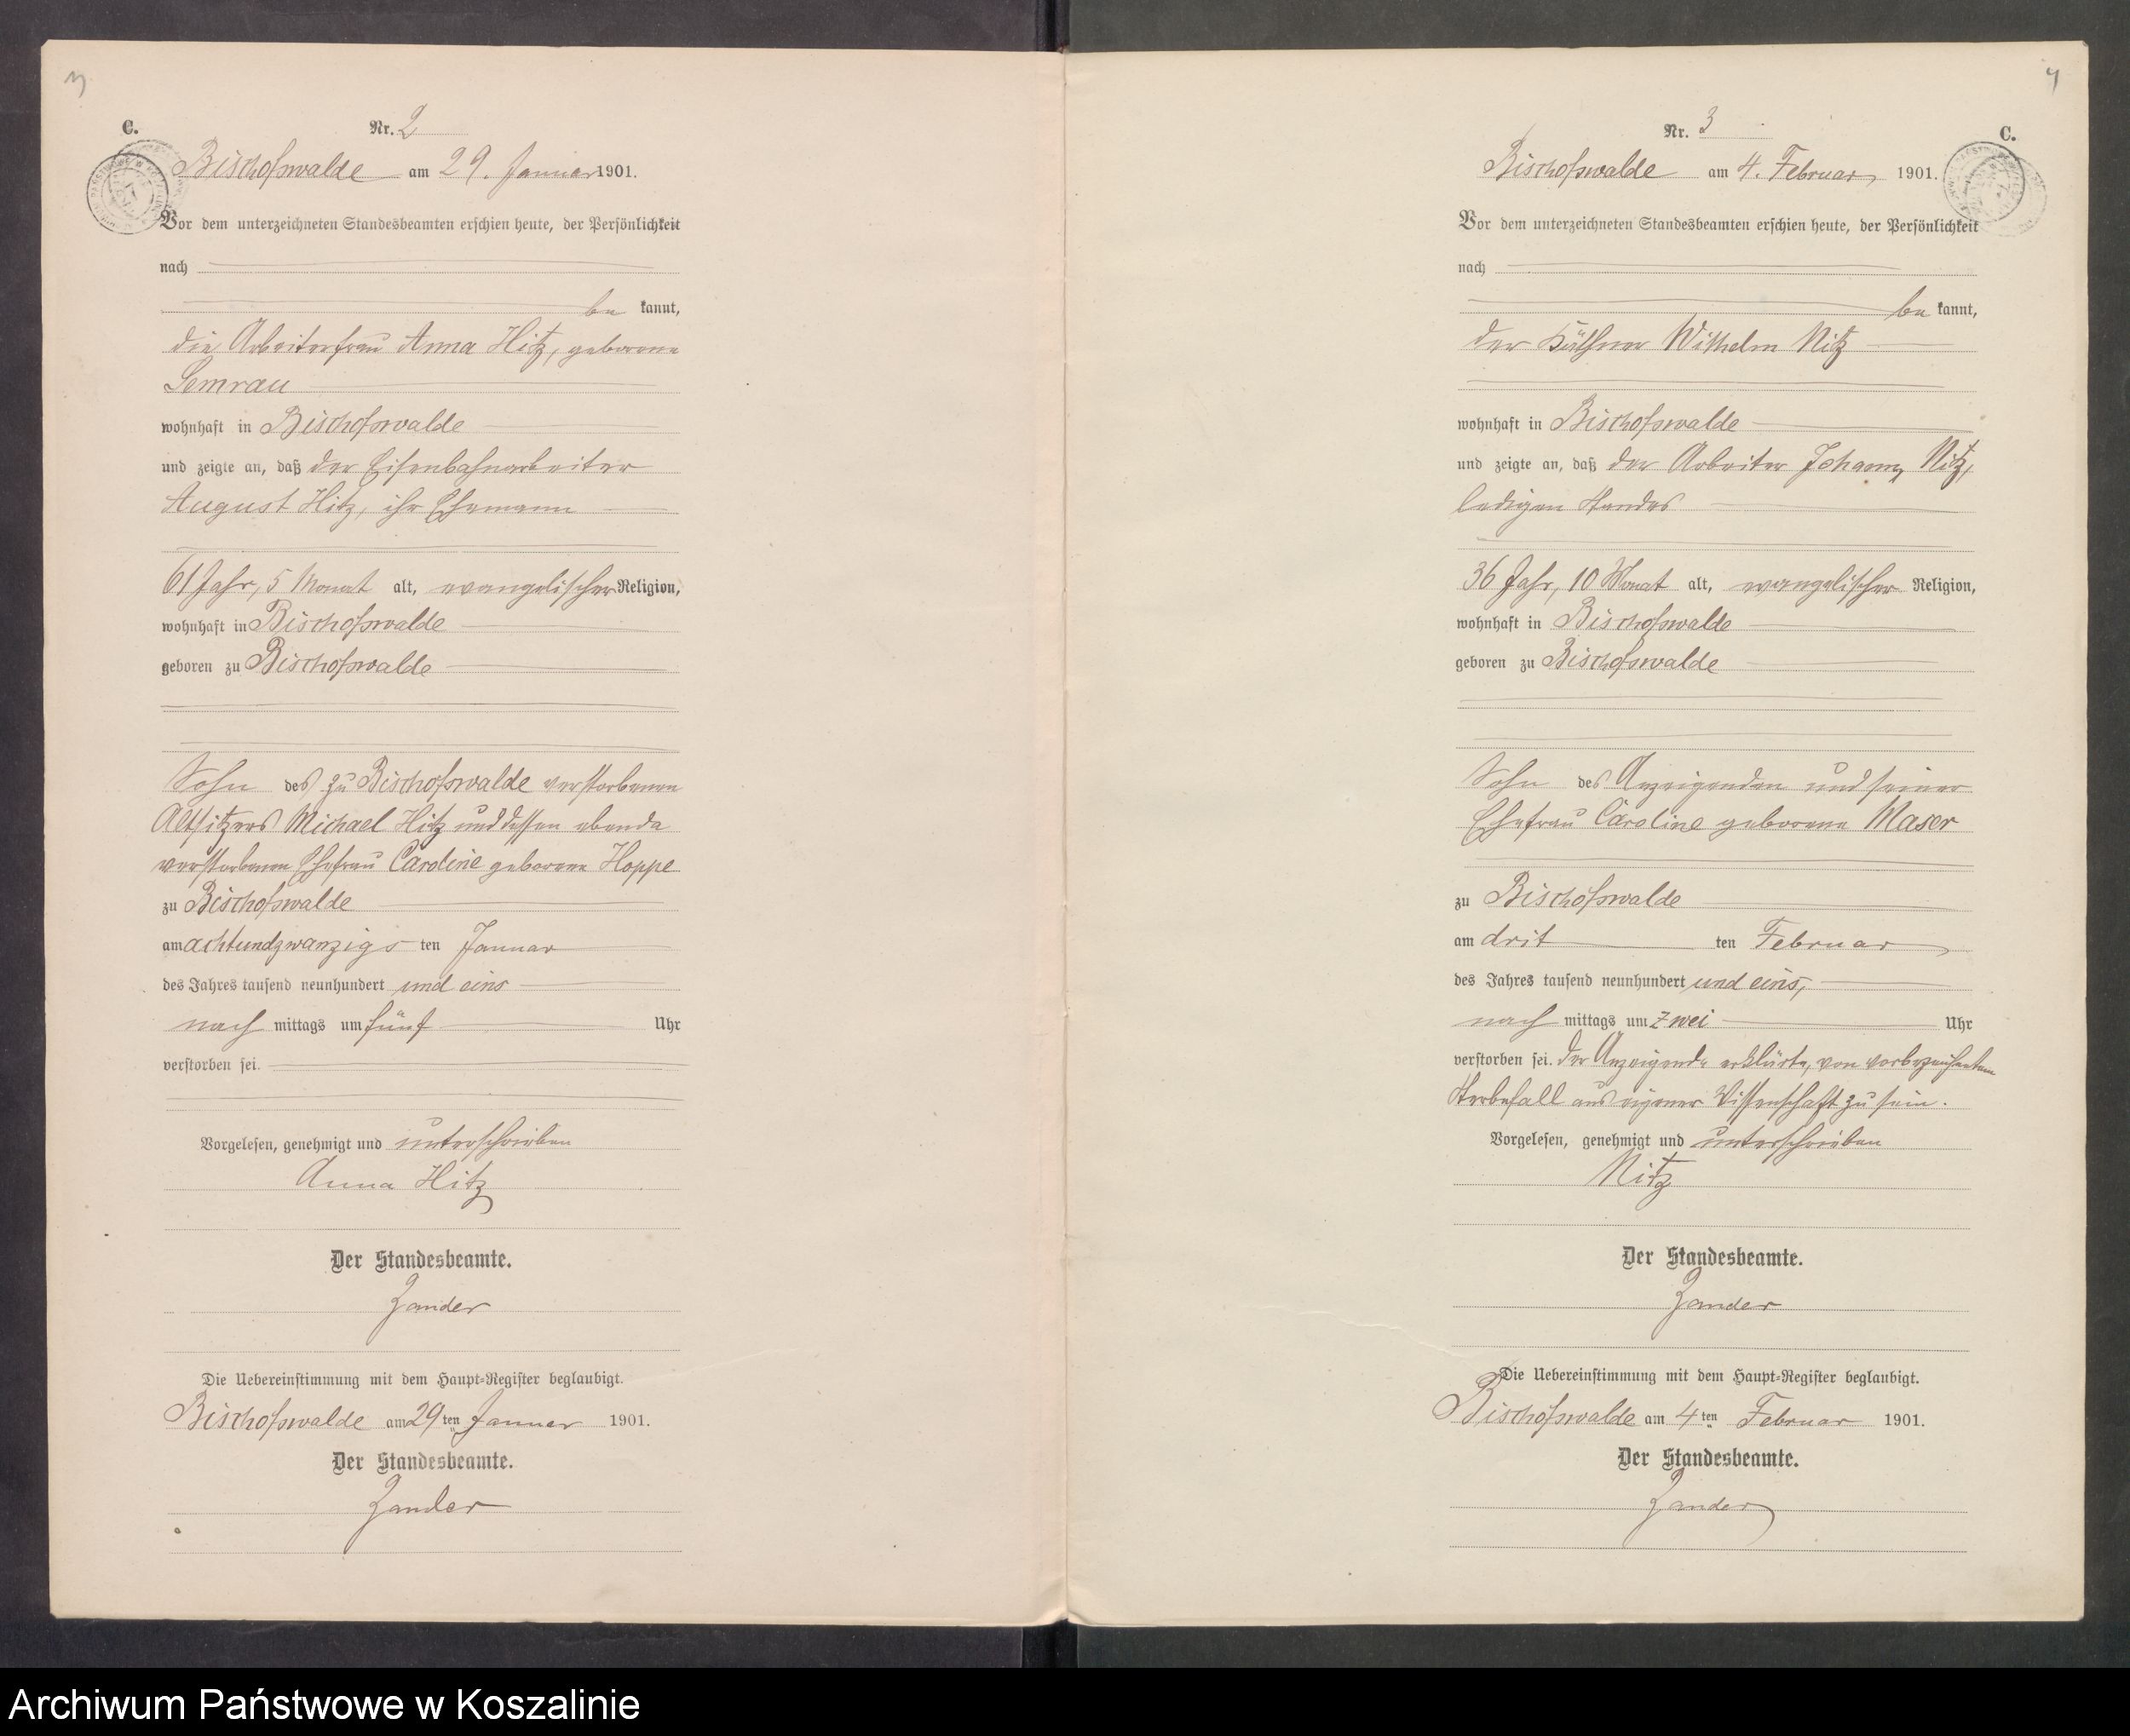 3
C.
Nr. 2
Bischofswalde am 29. Januar 1901.
Vor dem unterzeichneten Standesbeamten erschien heute, der Persönlichkeit
nach
be kannt,
die Arbeiterfrau Anna Hitz, geborene
Semrau
wohnhaft in Bischofswalde
und zeigte an, daß der Eisenbahnarbeiter
August Hitz, ihr Ehemann
61 Jahr, 5 Monat alt, evangelischer Religion,
wohnhaft in Bischofswalde
geboren zu Bischofswalde
Sohn des zu Bischofswalde verstorbenen
Altsitzers Michael Hitz und dessen ebenda
verstorbenen Ehefrau Caroline geborene Hoppe
zu Bischofswalde
am achtundzwanzigs ten Januar
des Jahres tausend neunhundert und eins
nach mittags um fünf Uhr
verstorben sei.
Vorgelesen, genehmigt und unterschrieben
Anna Hitz
Der Standesbeamte.
Zander
Die Uebereinstimmung mit dem Haupt-Register beglaubigt.
Bischofswalde am 29ten Januar 1901.
Der Standesbeamte.
Zander
4
Nr. 3
C.
Bischofswalde am 4. Februar 1901.
Vor dem unterzeichneten Standesbeamten erschien heute, der Persönlichkeit
nach
be kannt,
der Käthner Wilhelm Nitz
wohnhaft in Bischofswalde
und zeigte an, daß der Arbeiter Johann Nitz,
ledigen Standes
36 Jahr, 10 Monat alt, evangelischer Religion,
wohnhaft in Bischofswalde
geboren zu Bischofswalde
Sohn des Anzeigenden und seiner
Ehefrau Caroline geborene Maser
zu Bischofswalde
am drit ten Februar
des Jahres tausend neunhundert und eins,
nach mittags um zwei Uhr
verstorben sei. Der Anzeigende erklärte, von vorbezeichnetem
Sterbefall aus eigener Wissenschaft zu sein.
Vorgelesen, genehmigt und unterschrieben
Nitz
Der Standesbeamte.
Zander
Die Uebereinstimmung mit dem Haupt-Register beglaubigt.
Bischofswalde am 4ten Februar 1901.
Der Standesbeamte.
Zander
Archiwum Państwowe w Koszalinie